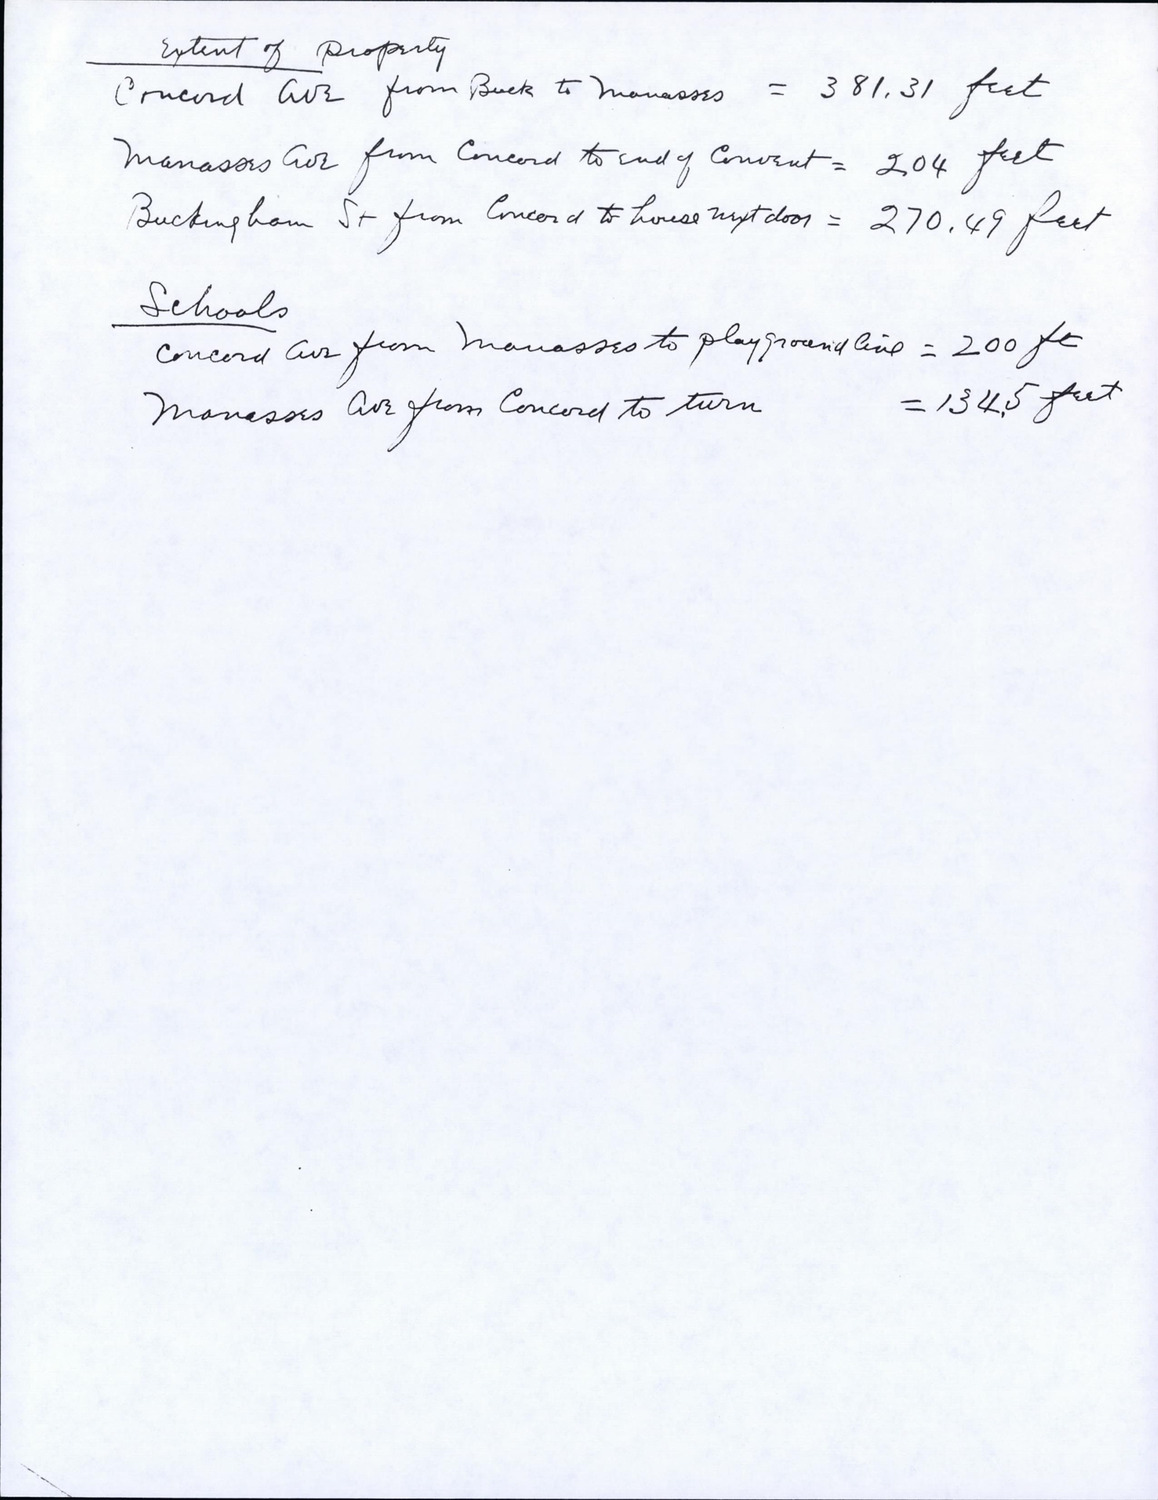 Extent of Property
Concord Ave from Buck to Manasses = 381.31 feet
Manasses Ave from Concord to end of Convent = 204 feet
Buckingham St from Concord to house next door = 270.49 feet
Schools
Concord Ave from Manasses to playground line = 200 ft
Manasses Ave from Concord to turn = 134.5 feet